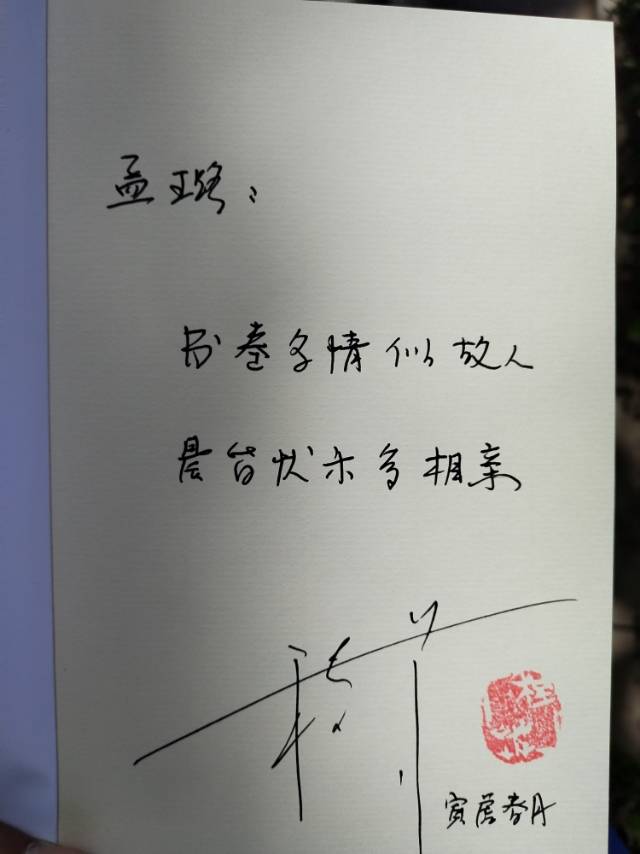 孟璐：
书卷多情似故人
晨昏忧乐每相亲
寅虎春月